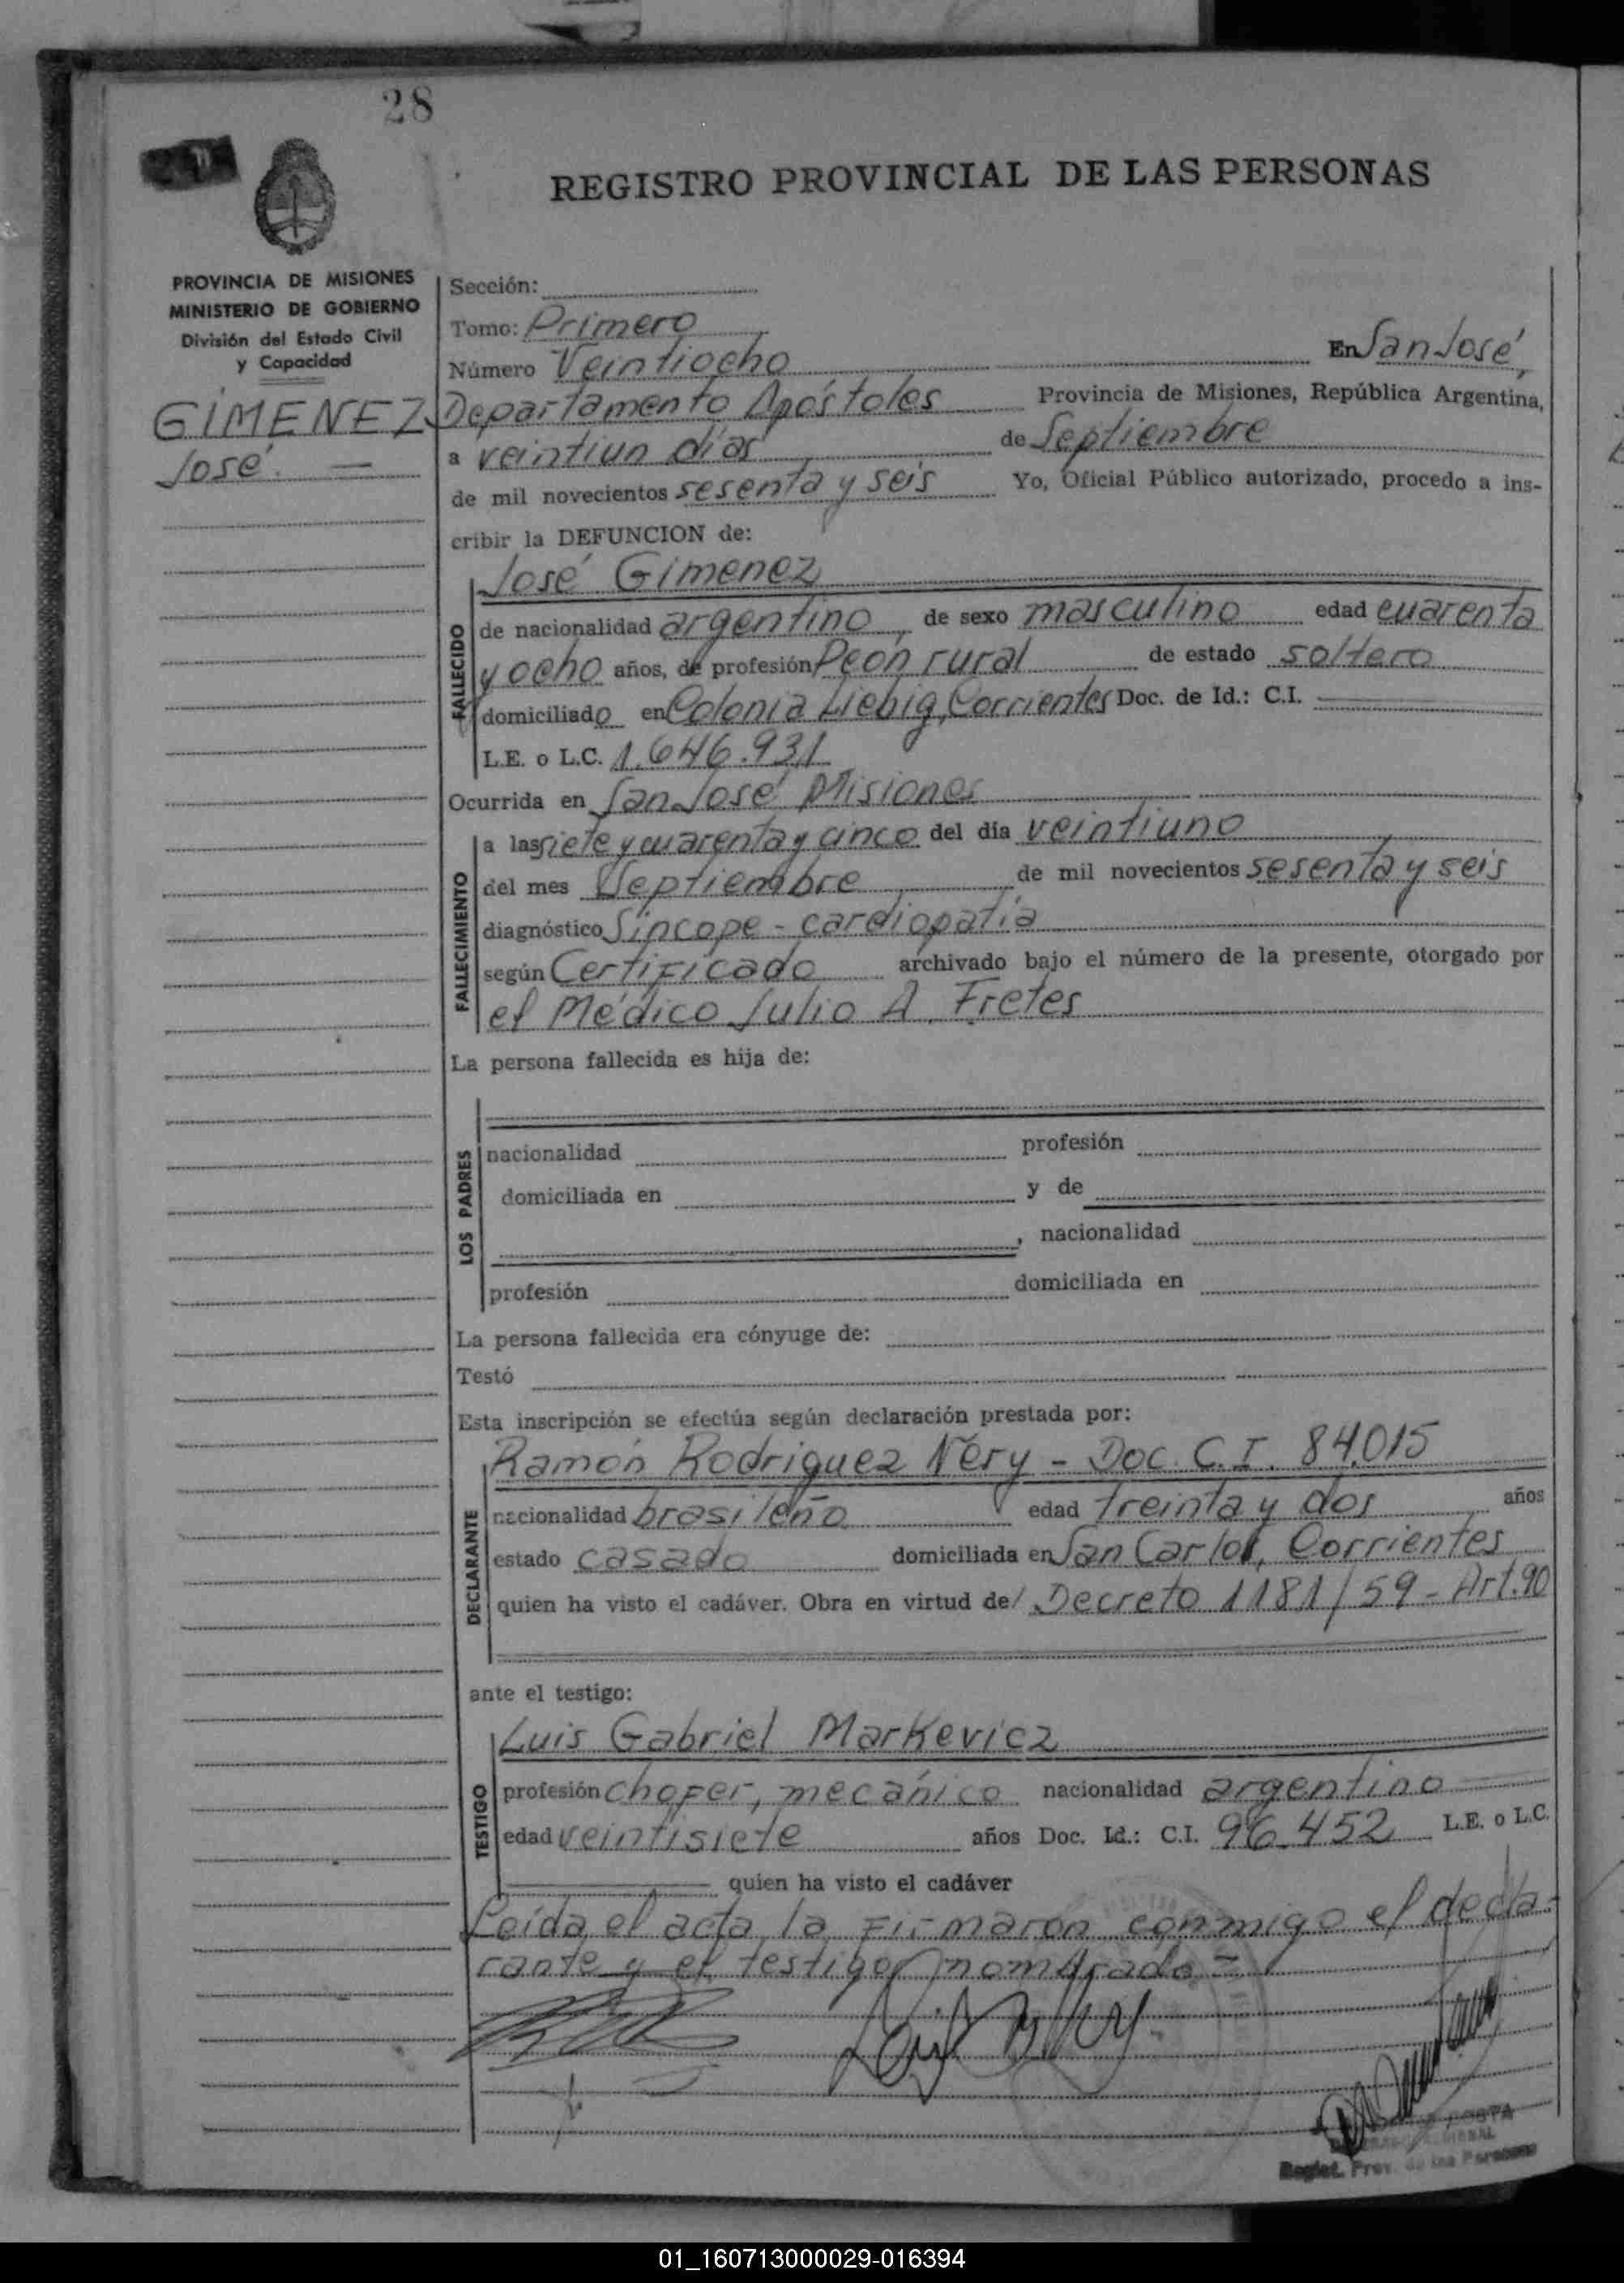 28
REGISTRO PROVINCIAL DE LAS PERSONAS
PROVINCIA DE MISIONES
MINISTERIO DE GOBIERNO
División del Estado Civil
y Capacidad
GIMENEZ
José. —
Sección:
Tomo: Primero
Número Veintiocho En San José,
Departamento Apóstoles Provincia de Misiones, República Argentina,
a veintiun días de Septiembre
de mil novecientos sesenta y seis Yo, Oficial Público autorizado, procedo a ins-
cribir la DEFUNCION de:
José Gimenez
FALLECIDO
de nacionalidad argentino de sexo masculino edad cuarenta
y ocho años, de profesión Peón rural de estado soltero
domiciliado en Colonia Liebig, Corrientes Doc. de Id.: C.I.
L.E. o L.C. 1.646.931
Ocurrida en San José Misiones
FALLECIMIENTO
a las siete y cuarenta y cinco del día veintiuno
del mes Septiembre de mil novecientos sesenta y seis
diagnóstico Síncope - cardiopatía
según Certificado archivado bajo el número de la presente, otorgado por
el Médico Julio A. Fretes
La persona fallecida es hija de:
LOS PADRES
nacionalidad profesión
domiciliada en y de
, nacionalidad
profesión domiciliada en
La persona fallecida era cónyuge de:
Testó
Esta inscripción se efectúa según declaración prestada por:
DECLARANTE
Ramón Rodriguez Nery - Doc. C.I. 84.015
nacionalidad brasileño edad treinta y dos años
estado casado domiciliada en San Carlos, Corrientes
quien ha visto el cadáver. Obra en virtud de/ Decreto 1181/59 - Art. 90
ante el testigo:
TESTIGO
Luis Gabriel Markevicz
profesión chofer, mecánico nacionalidad argentino
edad veintisiete años Doc. Id.: C.I. 96.452 L.E. o L.C.
quien ha visto el cadáver
Leída el acta, la firmaron conmigo el decla-
rante y el testigo nombrado =
Regist. Prov. de las Personas
01_160713000029-016394